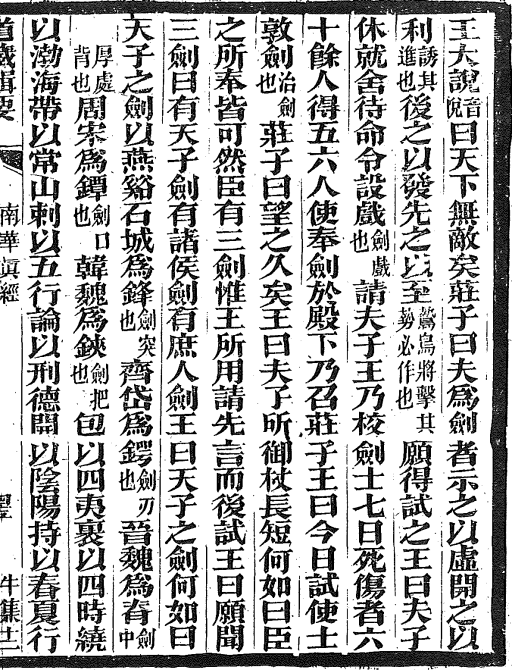 王大說音悅曰天下無敵矣莊子曰夫為劍者示之以虛開之以
利誘其進也後之以發先之以至鷙鳥將擊其勢必作也願得試之王曰夫子
休就舍待命令設戲劍戲也請夫子王乃校劍士七日死傷者六
十餘人得五六人使奉劍於殿下乃召莊子王曰今日試使士
敦劍治劍也莊子曰望之久矣王曰夫子所御杖長短何如曰臣
之所奉皆可然臣有三劍惟王所用請先言而後試王曰願聞
三劍曰有天子劍有諸侯劍有庶人劍王曰天子之劍何如曰
天子之劍以燕谿石城為鋒劍突也齊岱為鍔劍刃也晉魏為脊劍中
厚處背也周宋為鐔劍口也韓魏為鋏劍把也包以四夷裹以四時繞
以渤海帶以常山制以五行論以刑德開以陰陽持以春夏行
道藏輯要 南華真經 牛集十二